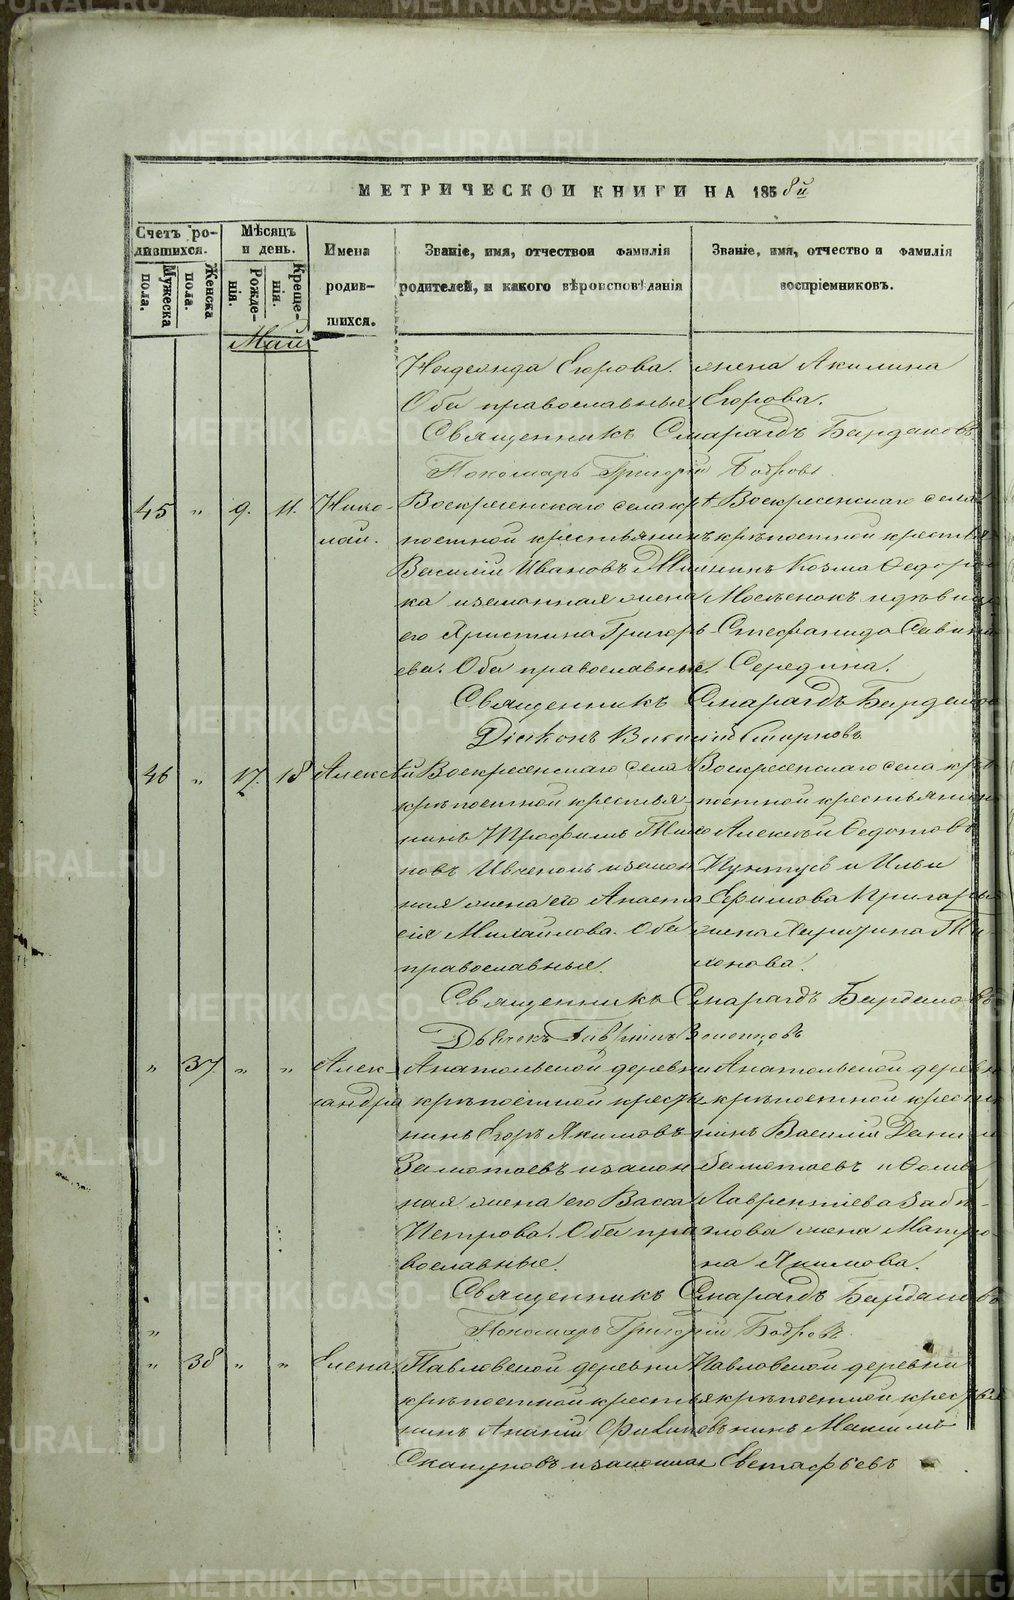 МЕТРИЧЕСКОЙ КНИГИ НА 1858й
Счетъ ро-
дившихся.
Мужеска
пола.
Женска
пола.
Мѣсяцъ
и день.
Рожде-
нія.
Креще-
нія.
Имена
родив-
шихся.
Званіе, имя, отчествои фамилія
родителей, и какого вѣроисповѣданія
Званіе, имя, отчество и фамилія
воспріемниковъ.
Май
Егорова.
Оба православныя.
жена Акилина
Егорова.
Священникъ Смарагдъ Бардаковъ
Пономарь Григорій Бобровъ
45 " 9. 11.
Нико-
лай.
Воскресенскаго села крѣ-
постной крестьянинъ
Василій Ивановъ
ка и законная жена
его Христина Григорь-
ева. Оба православные.
Воскресенскаго села
крѣпостной крестья
Козма Федоро
и дѣвица
Стефанида Савина
Середина.
Священникъ Смарагдъ Бардаков
Діаконъ Василій Смирновъ
46 " 17. 18
Алексѣй
Воскресенскаго села
крѣпостной крестья-
нинъ Трофимъ Тихо
новъ и закон
ная жена его Анаста
сія Михайлова. Оба
православные.
Воскресенскаго села крѣ
постной крестьянинъ
Алексѣй Федотовъ
и Ильи
Ефимова
жена Ти
хонова.
Священникъ Смарагдъ Бардаковъ
Дьячекъ Гавріилъ
" 37 " "
Алек-
сандра
Анатольской деревни
крѣпостной кресть-
нинъ Егоръ Якимовъ
Залотаевъ и закон
ная жена его Васса
Петрова. Оба пра
вославные.
Анатольской деревн
крѣпостной кресть
нинъ Василій Данил
Залотаевъ и Фомы
Лаврентіева Забѣ-
гова жена Матро-
на Якимова.
Священникъ Смарагдъ Бардаковъ
Пономарь Григорій Бобровъ
"
" 38 " "
Елена
Павловской деревни
крѣпостной крестья
нинъ Ананій
Скакуновъ и законная
Павловской деревни
крѣпостной крестья
нинъ Максимъ
Евстафьевъ